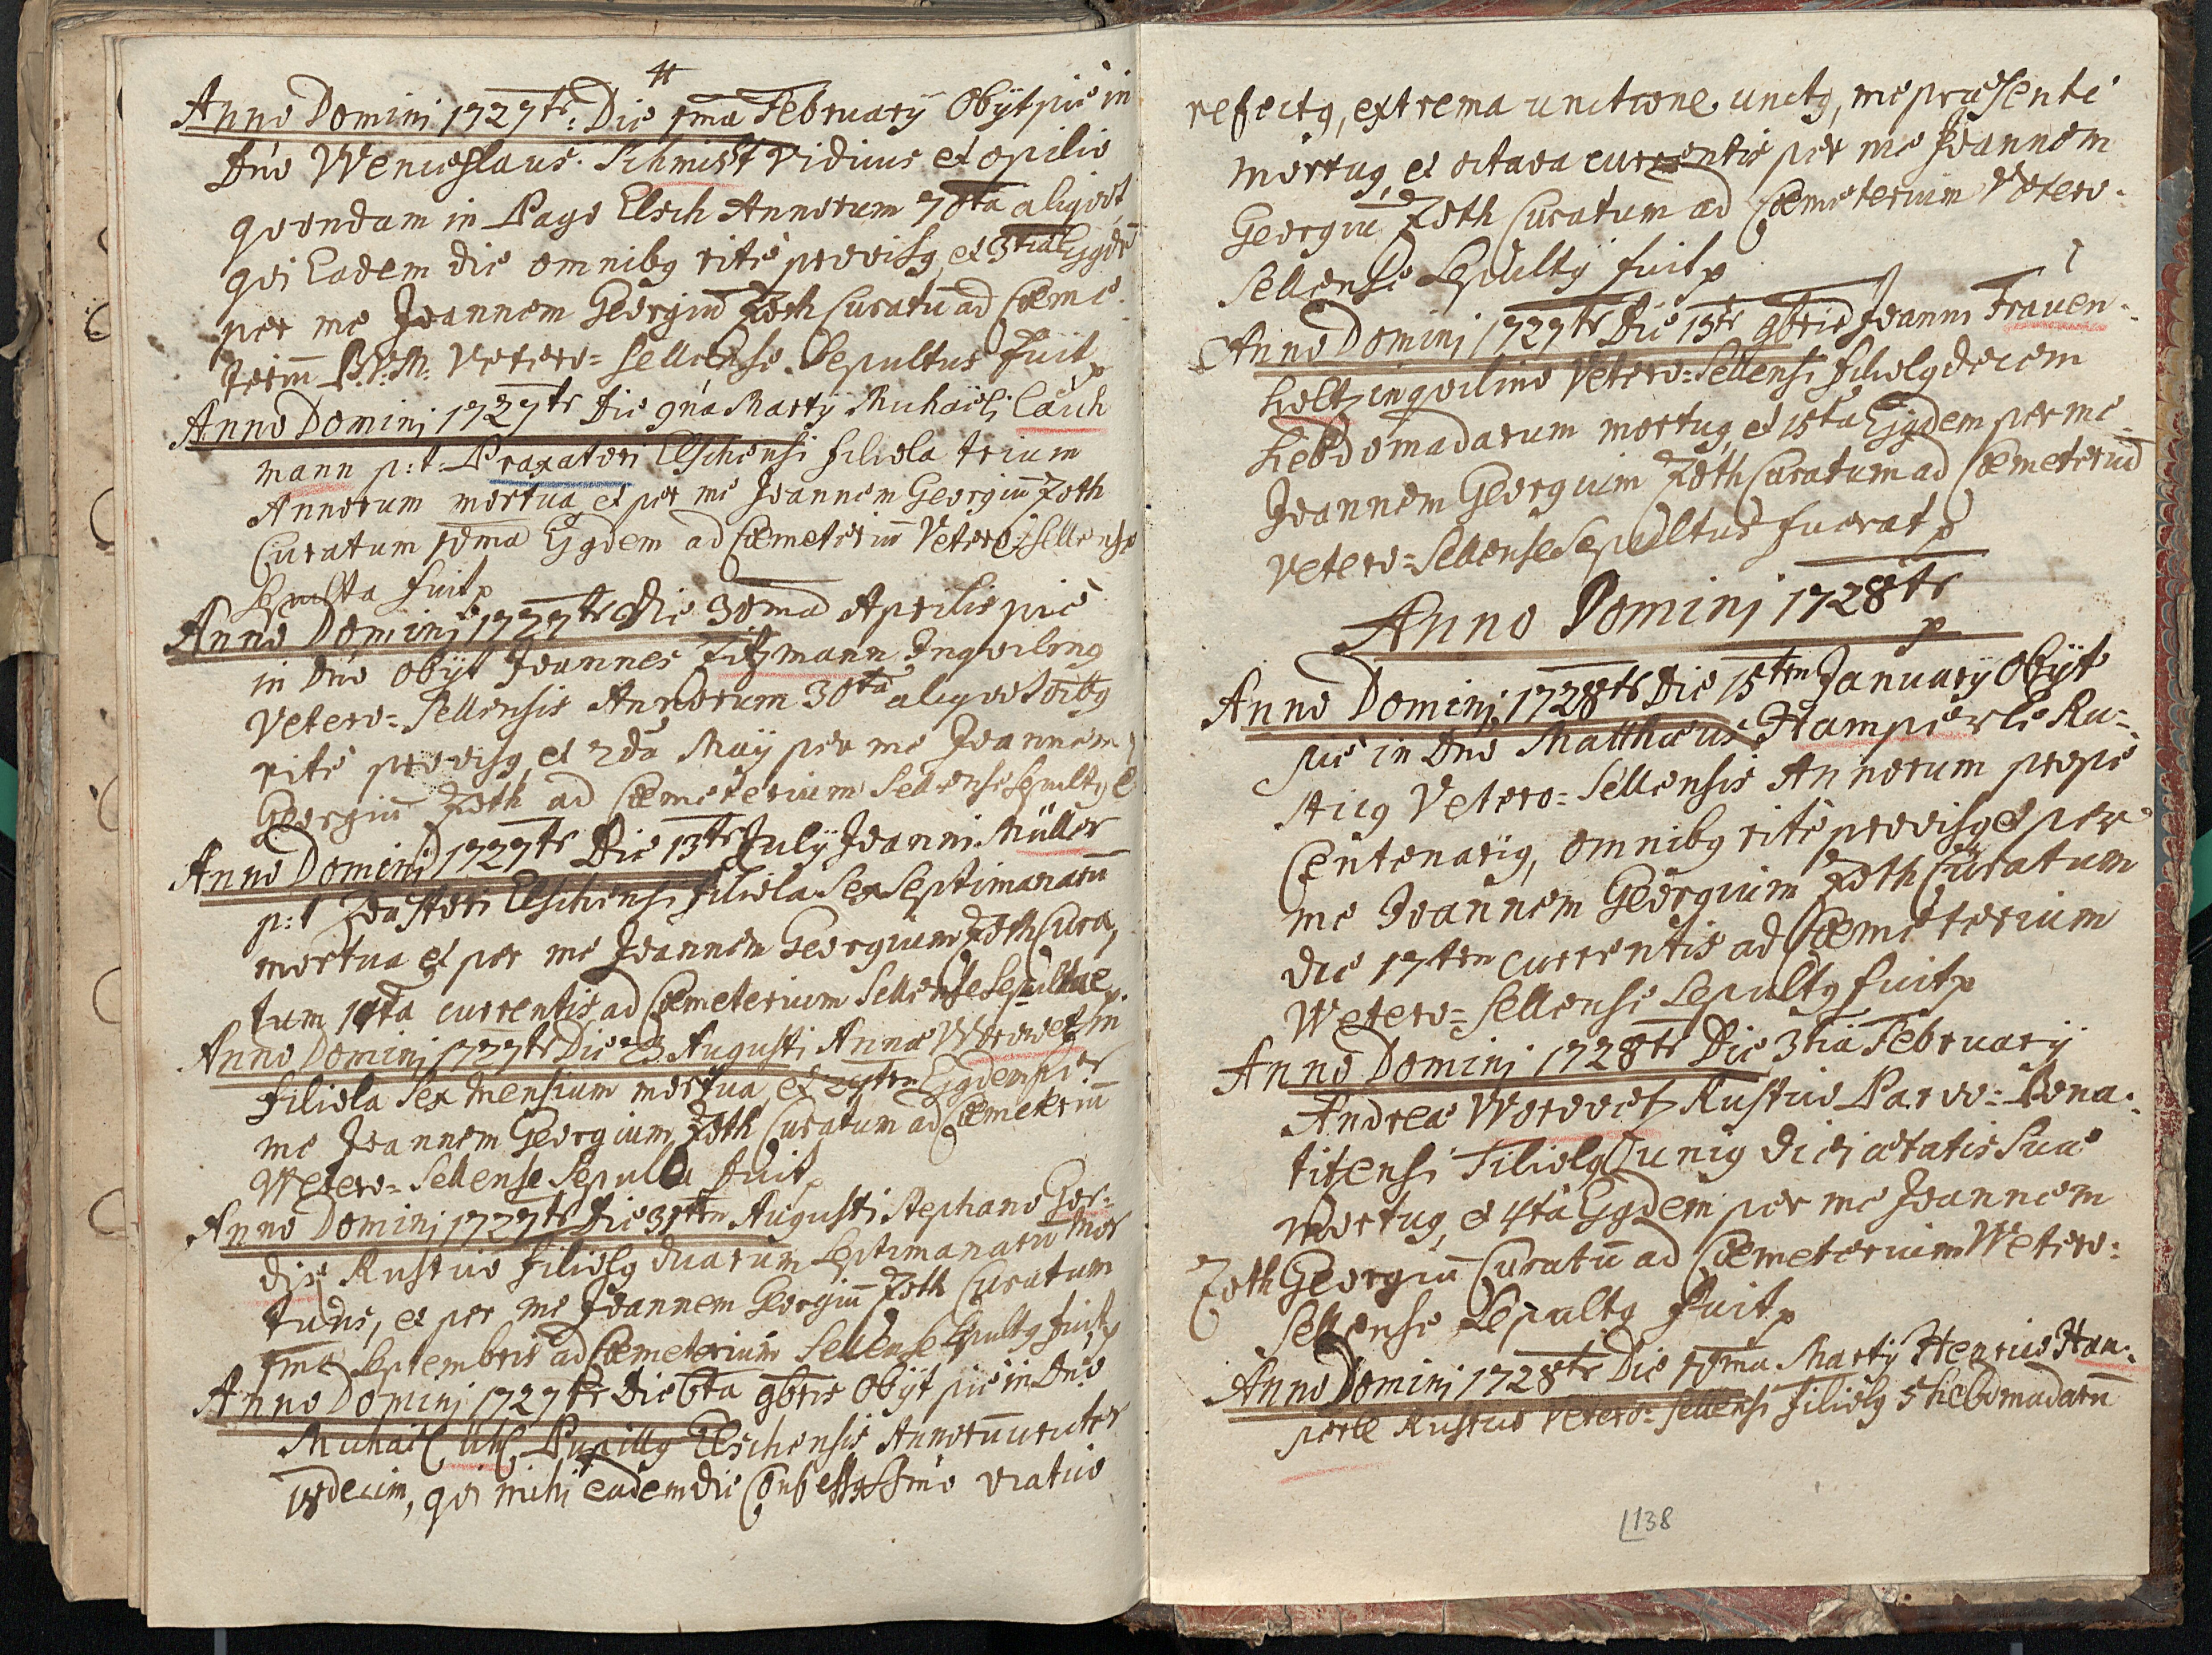 Anno Dominj 1727tr: Die 1ma February Obÿt pie in
Dno Wenceslaus Schmist Viduus et opilio
quondam in Pago Elsch Annorum 70ta aliquot
qui Eadem die omnibq rite provisq, et 3tia Ejqde
per me Joannem Georgiu Zoth Curatu ad Cæme-
teriu B.V.M. Vetero=Sellense Sepultus fuit p
Anno Dominj 1727tr Die 9na Martÿ Michaëli Lauch
mann p:t: Praxatori Elschensi filiola trium
Annorum mortua, et per me Joannem Georgiu Zoth
Curatum 10ma Ejqdem ad Cæmeteriu Vetero=Sellense
Sepulta fuit p
Anno Dominj 1727tr Die 30ma Aprilis pie
in Dno obÿt Joannes Zitzmann Inquilinq
Vetero=Sellensis Annorum 30ta aliquot oibq
rite provisq, et 2da Maÿ per me Joannem
Georgiu Zoth ad Cæmeterium Sellense Sepultq e
Anno Dominj 1727tr Die 13tr Julÿ Joanni Müller
p:t Braxatori Elschensi filiola Sex Septimanaru
mortua et per me Joannem Georgium Zoth Cura
tum 14ta currentis ad Cæmeterium Sellense Sepulta e p.
Anno Dominj 1727tr Die 23 Augusti Annæ Worowetzin
filiola Sex Mensium mortua, et 24trn Ejqdem per
me Joannem Georgium Zoth Curatum ad Cæmeteriu
Wetero=Sellense Sepulta fuit p
Anno Dominj 1727tr Die 31trn Augusti Stephano Gor=
dis Rustico filiolq duarum Septimanaru mor
tuus, et per me Joannem Georgiu Zoth Curatum
1ma Septembris ad Cæmeterium Sellense Sepultq fuit p
Anno Dominj 1727tr Die 6ta 9bris Obÿt pie in Dno
Michaël Pupillq Elschensis Annoru circiter
18decim, qui mihi eadem die Confessq Smo viatico
refectq, extrema unctione unctq, me præsente
mortuq, et octava currentis per me Joannem
Georgiu Zoth Curatum ad Cæmeterium Vetero=
Sellense Sepultq fuit p
Anno Dominj 1727tr Die 13tr 9bris Joanni Frauen=
holtz inquilino Vetero=Sellensi filiolq decem
hebdomadarum mortuq, et 15ta Ejqdem per me
Joannem Georgium Zoth Curatum ad Cæmeteriu
Vetero=Sellense Sepultus fuerat p
Anno Dominj 1728tr
p
Anno Dominj 1728tr Die 15trn January Obÿt
pie in Dno Matthæus Hamperle Ru=
sticq Vetero=Sellensis Annorum prope
Centenariq, omnibq rite provisq et per
me Joannem Georgium Zoth Curatum
die 17trn currentis ad Cæmeterium
Wetero=Sellense Sepultq fuit p
Anno Dominj 1728tr Die 3tia February
Andreæ Worowetz Rustico Parvo=Bona=
titensi Filiolq uniq diei ætatis Suæ
Mortuq, et 4ta Ejqdem per me Joannem
Zoth Georgiu Curatu ad Cæmeterium Wetero=
Sellense Sepultq fuit p
Anno Dominj 1728tr Die 10ma Martÿ Henrico Ham=
perle Rustico Vetero=Sellensi filiolq 5 hebdomadaru
138